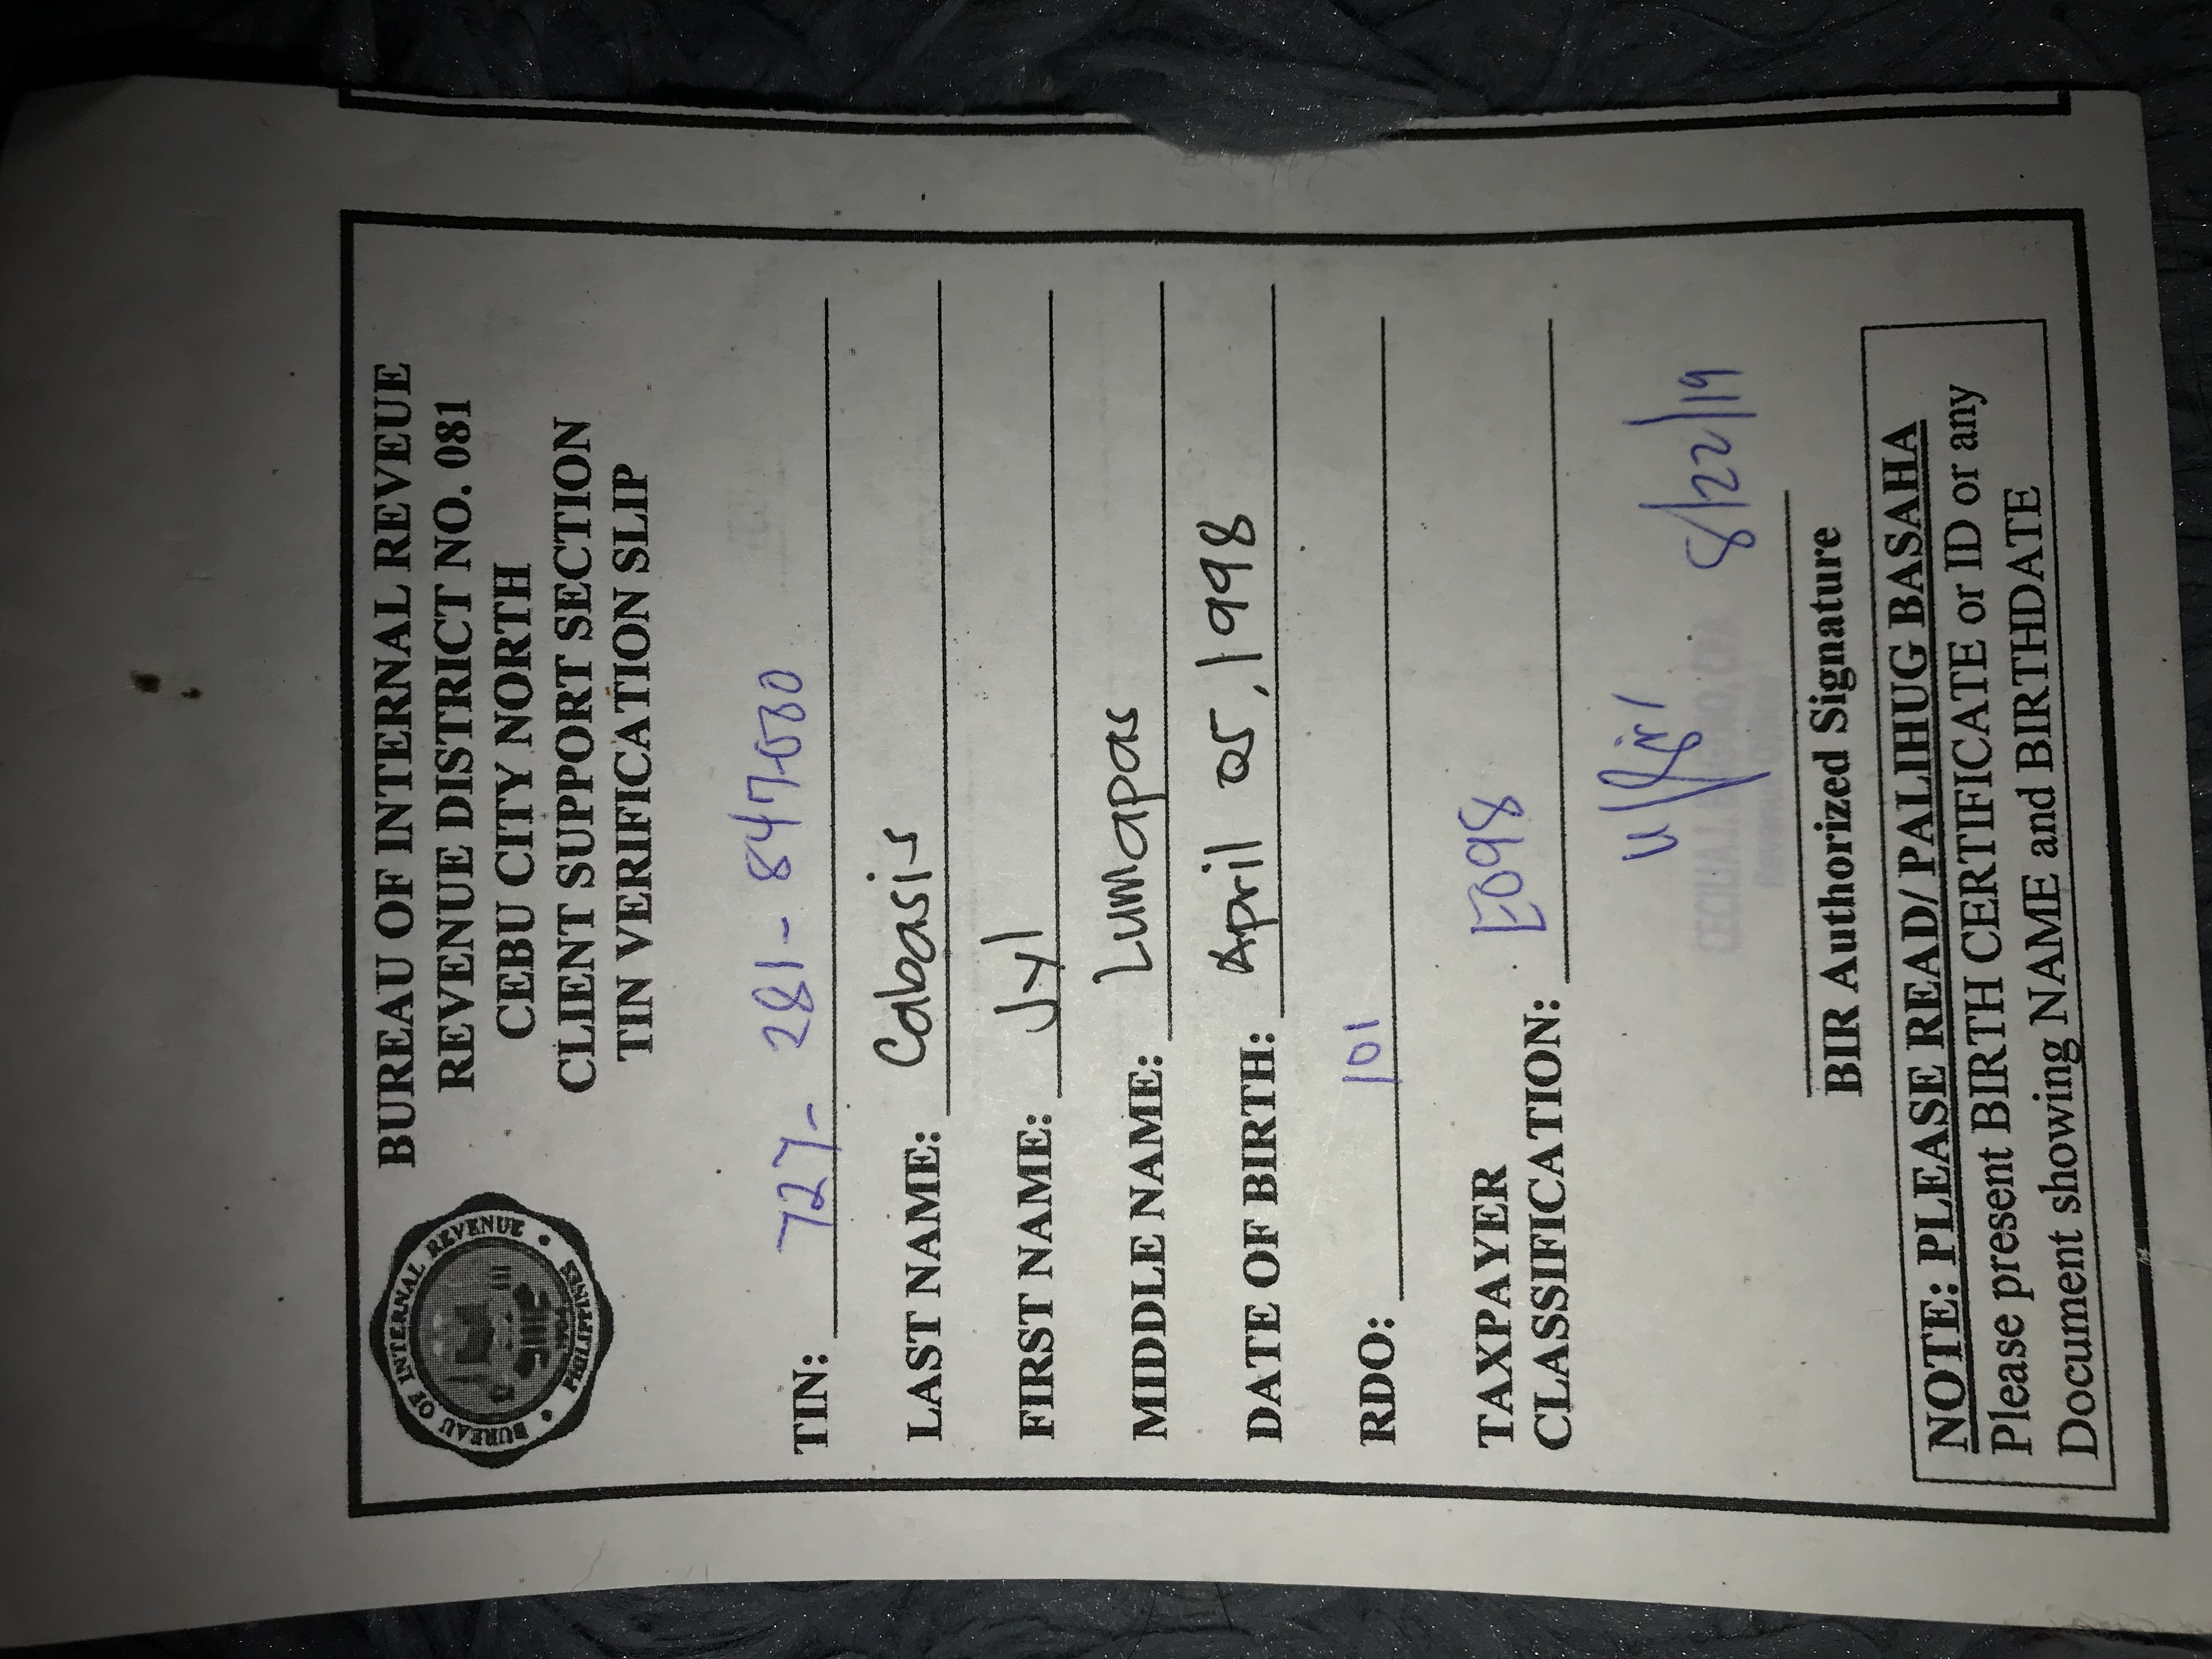 BUREAU OF INTERNAL REVEUE
REVENUE DISTRICT NO. 081
CEBU CITY NORTH
CLIENT SUPPORT SECTION
TIN VERIFICATION SLIP
BUREAU OF INTERNAL REVENUE
PHILIPPINES
TIN: 727-281-847-000
LAST NAME: Cabasis
FIRST NAME: Jyl
MIDDLE NAME: Lumapas
DATE OF BIRTH: April 25, 1998
RDO: 101
TAXPAYER
CLASSIFICATION: E098
8/22/19
BIR Authorized Signature
NOTE: PLEASE READ/ PALIHUG BASAHA
Please present BIRTH CERTIFICATE or ID or any
Document showing NAME and BIRTHDATE